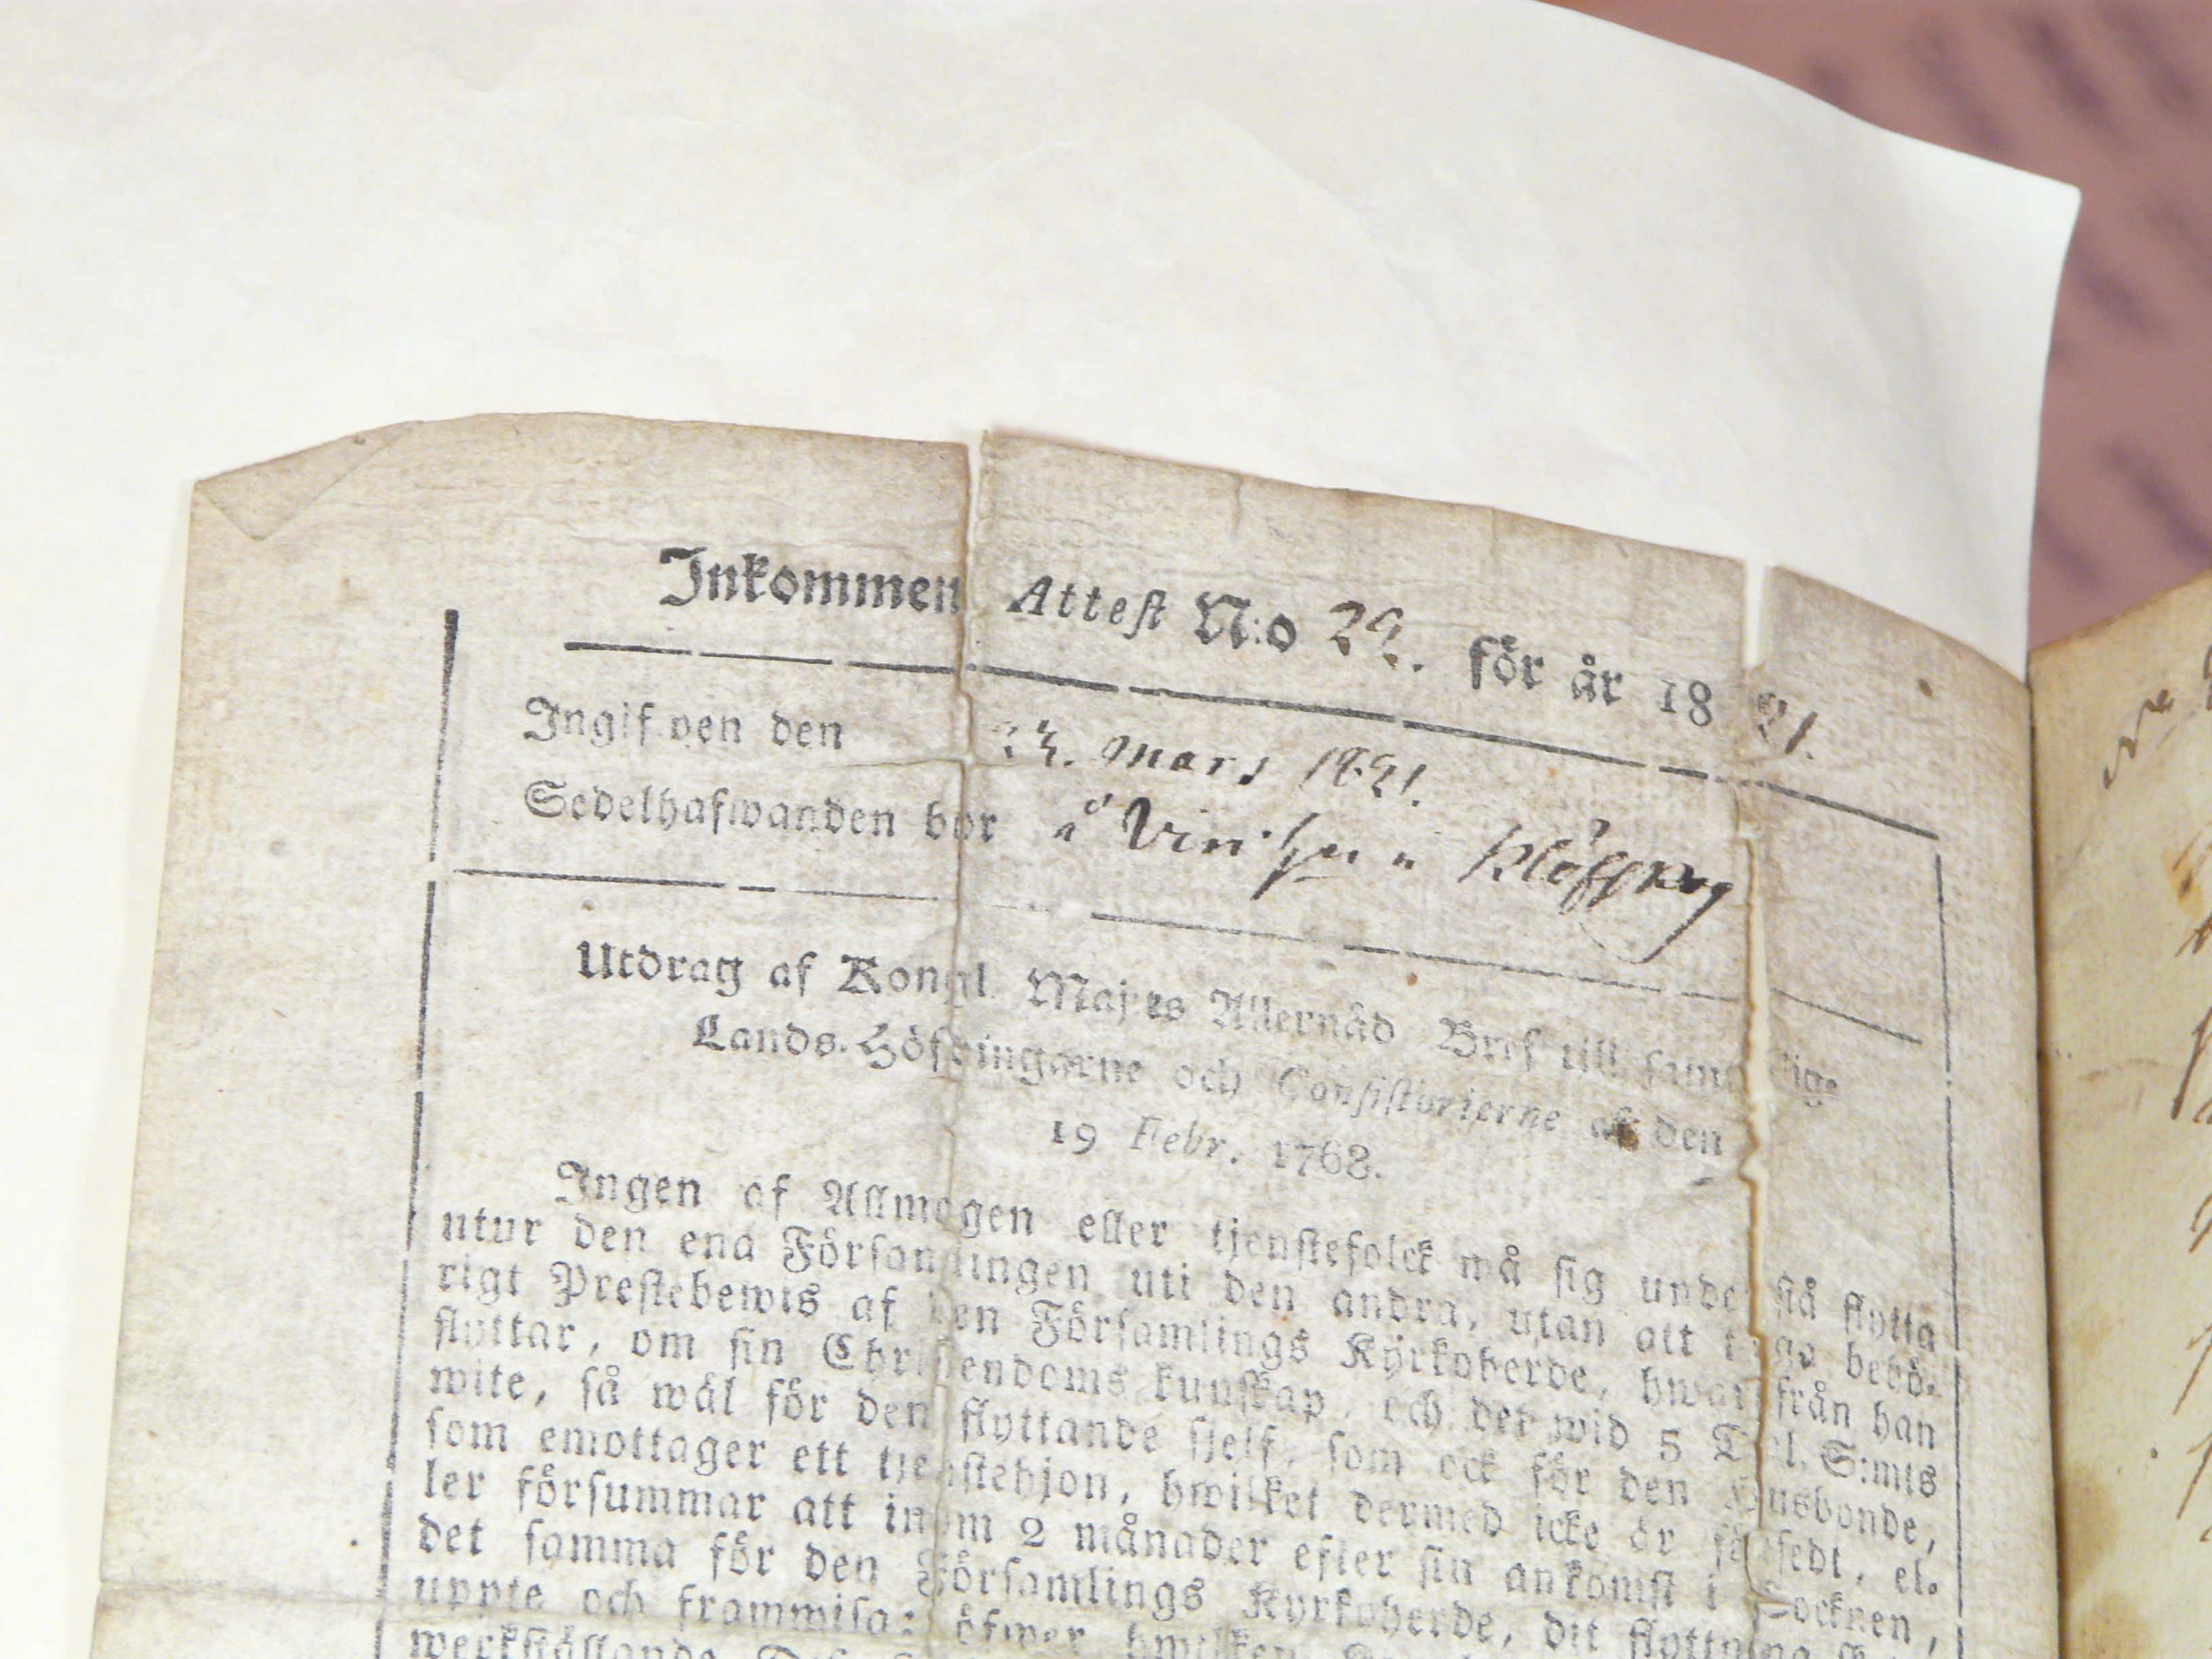 Inkommen Attest N:o 22. för år 1821.
Ingifven den 23. Mars 1821.
Sedelhafwanden bor å i
Utdrag af Kongl. Maj:ts Allernåd Bref till samtlige
Lands-Höfdingarne och Consistorierne af den
19 Febr. 1768.
Ingen af Allmogen eller tjenstefolck må sig understå flytta
utur den ena Församlingen uti den andra, utan att taga behö-
rigt Prestebewis af den Församlings Kyrkoherde, hwarifrån han
flyttar, om sin Christendoms kunskap, och det wid 5 Dal. S:mts
wite, så wäl för den flyttande sjelf, som ock för den Husbonde,
som emottager ett tjenstehjon, hwilket dermed icke är försedt, el-
ler försummar att inom 2 månader efter sin ankomst i Socknen,
det samma för den Församlings Kyrkoherde, dit flyttning
uppte och frammwisa: öfwer hwilken
werkställande